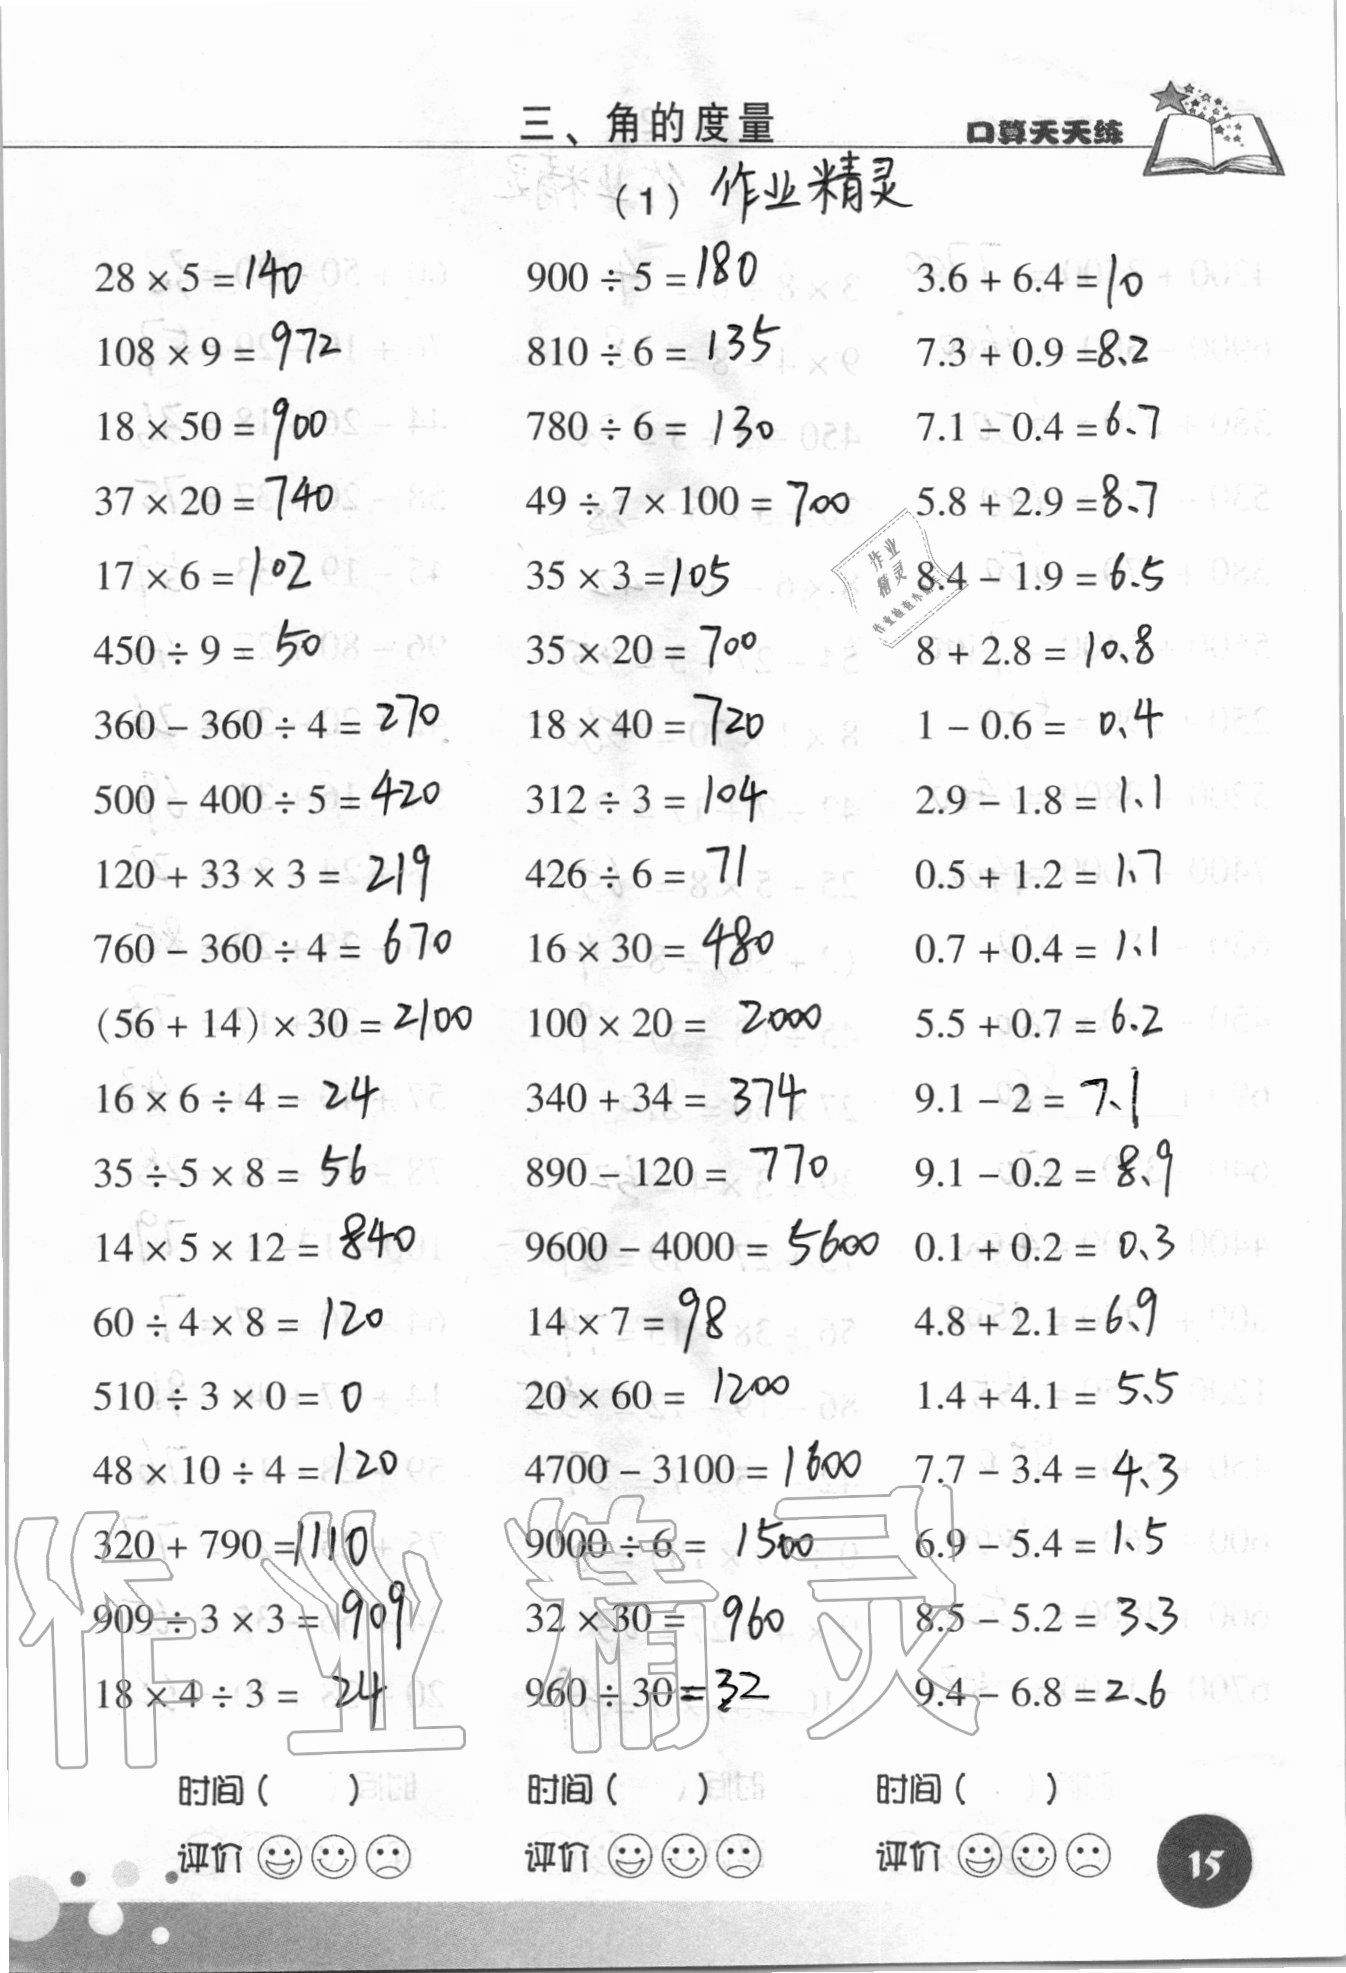 三、角的度量
口算天天练
(1) 作业精灵
28 × 5 = 140
108 × 9 = 972
18 × 50 = 900
37 × 20 = 740
17 × 6 = 102
450 ÷ 9 = 50
360 − 360 ÷ 4 = 270
500 − 400 ÷ 5 = 420
120 + 33 × 3 = 219
760 − 360 ÷ 4 = 670
(56 + 14) × 30 = 2100
16 × 6 ÷ 4 = 24
35 ÷ 5 × 8 = 56
14 × 5 × 12 = 840
60 ÷ 4 × 8 = 120
510 ÷ 3 × 0 = 0
48 × 10 ÷ 4 = 120
320 + 790 = 1110
909 ÷ 3 × 3 = 909
18 × 4 ÷ 3 = 24
时间( )
评价
900 ÷ 5 = 180
810 ÷ 6 = 135
780 ÷ 6 = 130
49 ÷ 7 × 100 = 700
35 × 3 = 105
35 × 20 = 700
18 × 40 = 720
312 ÷ 3 = 104
426 ÷ 6 = 71
16 × 30 = 480
100 × 20 = 2000
340 + 34 = 374
890 − 120 = 770
9600 − 4000 = 5600
14 × 7 = 98
20 × 60 = 1200
4700 − 3100 = 1600
9000 ÷ 6 = 1500
32 × 30 = 960
960 ÷ 30 = 32
时间( )
评价
3.6 + 6.4 = 10
7.3 + 0.9 = 8.2
7.1 − 0.4 = 6.7
5.8 + 2.9 = 8.7
8.4 − 1.9 = 6.5
8 + 2.8 = 10.8
1 − 0.6 = 0.4
2.9 − 1.8 = 1.1
0.5 + 1.2 = 1.7
0.7 + 0.4 = 1.1
5.5 + 0.7 = 6.2
9.1 − 2 = 7.1
9.1 − 0.2 = 8.9
0.1 + 0.2 = 0.3
4.8 + 2.1 = 6.9
1.4 + 4.1 = 5.5
7.7 − 3.4 = 4.3
6.9 − 5.4 = 1.5
8.5 − 5.2 = 3.3
9.4 − 6.8 = 2.6
时间( )
评价
作业
精灵
作业精灵
15